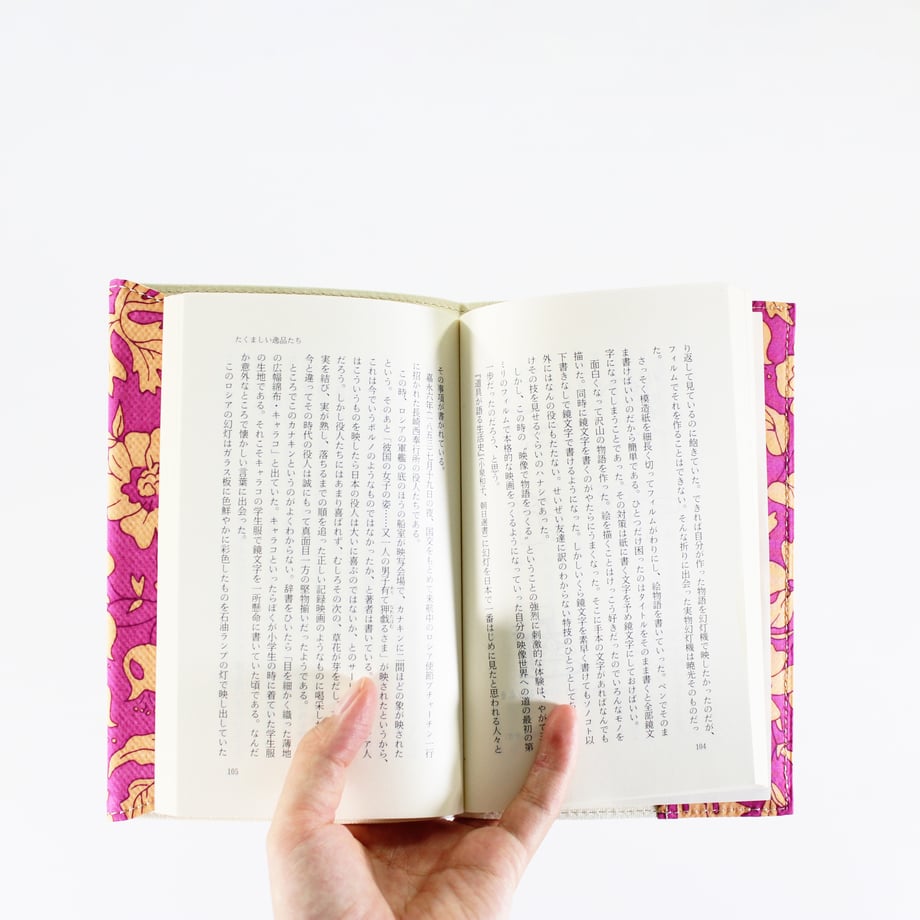 り返して見ているのに飽きていた。できれば自分が作った物語を幻灯機で映したかったのだが、
フィルムでそれを作ることはできない。そんな折りに出会った実物幻灯機は暁光そのものだっ
た。
さっそく模造紙を細長く切ってフィルムがわりにし、絵物語を書いていった。ペンでそのま
ま書けばいいのだから簡単である。ひとつだけ困ったのはタイトルをそのまま書くと全部鏡文
字になってしまうことであった。その対策は紙に書く文字を予め鏡文字にしておけばいい。
面白くなって沢山の物語を作った。絵を描くことはけっこう好きだったのでいろんなモノを
描いた。同時に鏡文字を書くのがやたらにうまくなった。そこに手本の文字があればなんでも
下書きなしで鏡文字で書けるようになった。しかしいくら鏡文字を素早く書けてもソノコト以
外にはなんの役にもたたない。せいぜい友達に訳のわからない特技のひとつとして
けその技を見せるぐらいのハナシであった。
しかし、この時の〝映像で物語をつくる〟ということの強烈に刺激的な体験は、やがて
リのフィルムで本格的な映画をつくるようになっていった自分の映像世界への道の最初の第
一歩だったのだろう、と思う。
『道具が語る生活史』(小泉和子、朝日選書)に幻灯を日本で一番はじめに見たと思われる人々と
104
たくましい逸品たち
その事項が書かれている。
嘉永六年(一八五三)二月十九日の夜、国交をもとめて来航中のロシア使節プチャーチン一行
に招かれた長崎西奉行所の役人たちである。
この時、ロシアの軍艦の底のほうの船室が映写会場で、カナキンに二間ほどの象が映された
という。そのあと「彼国の女子の姿……又一人の男子有て狎戯るさま」が映されたというから、
これは今でいうポルノのようなものではなかったか、と著者は書いている。
はこういうものを映したら日本の役人は大いに喜ぶのではないか、とのサー
だろう。しかし役人たちにはあまり喜ばれず、むしろその次の、草花が芽をだし
実を結び、実が熟し、落ちるまでの順を追った正しい記録映画のようなものに喝采し
今と違ってその時代の役人は誠にもって真面目一方の堅物揃いだったようである。
ところでこのカナキンというのがよくわからない。辞書をひいたら「目を細かく織った薄地
の広幅綿布・キャラコ」と出ていた。キャラコといったらぼくが小学生の時に着ていた学生服
の生地である。それこそキャラコの学生服で鏡文字を一所懸命に書いていた頃である。なんだ
か意外なところで懐かしい言葉に出会った。
このロシアの幻灯はガラス板に色鮮やかに彩色したものを石油ランプの灯で映し出していた
105